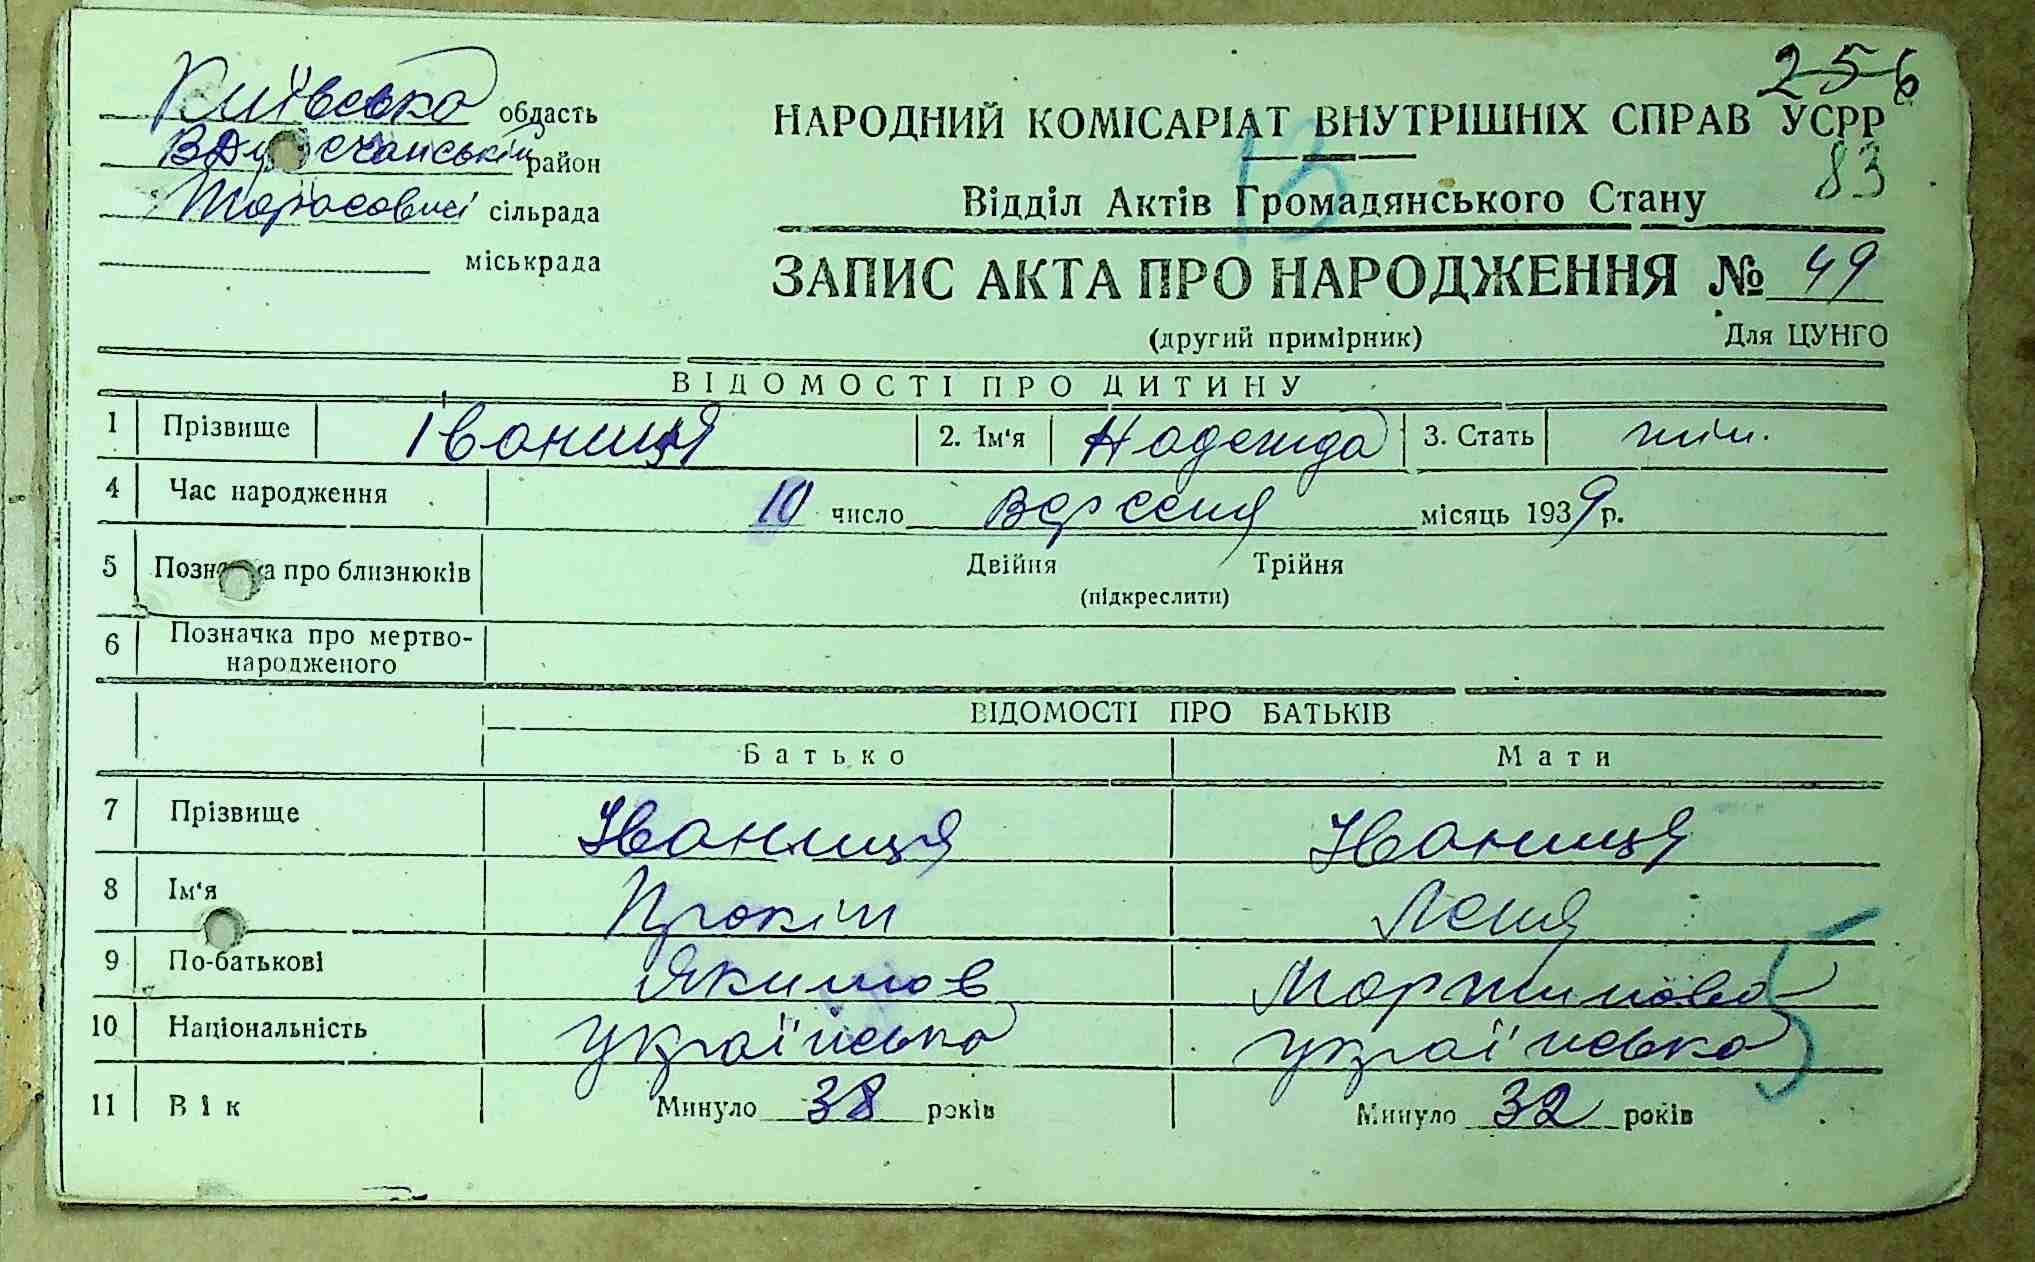 256
Київська область
НАРОДНИЙ КОМІСАРІАТ ВНУТРІШНІХ СПРАВ УСРР
район
83
13
Відділ Актів Громадянського Стану
сільрада
міськрада
ЗАПИС АКТА ПРО НАРОДЖЕННЯ № 49
(другий примірник) Для ЦУНГО
ВІДОМОСТІ ПРО ДИТИНУ
1 Прізвище Іваниця 2. Ім'я Надежда 3. Стать жін.
4 Час народження 10 число вересня місяць 1939 р.
5 Позн ка про близнюків Двійня Трійня
(підкреслити)
6 Позначка про мертво-
народженого
ВІДОМОСТІ ПРО БАТЬКІВ
Батько Мати
7 Прізвище Іваниця Іваниця
8 Ім'я Прокіп Лєня
9 По-батькові Якимов Мартинова
10 Національність українська українська
11 Вік Минуло 38 років Минуло 32 років